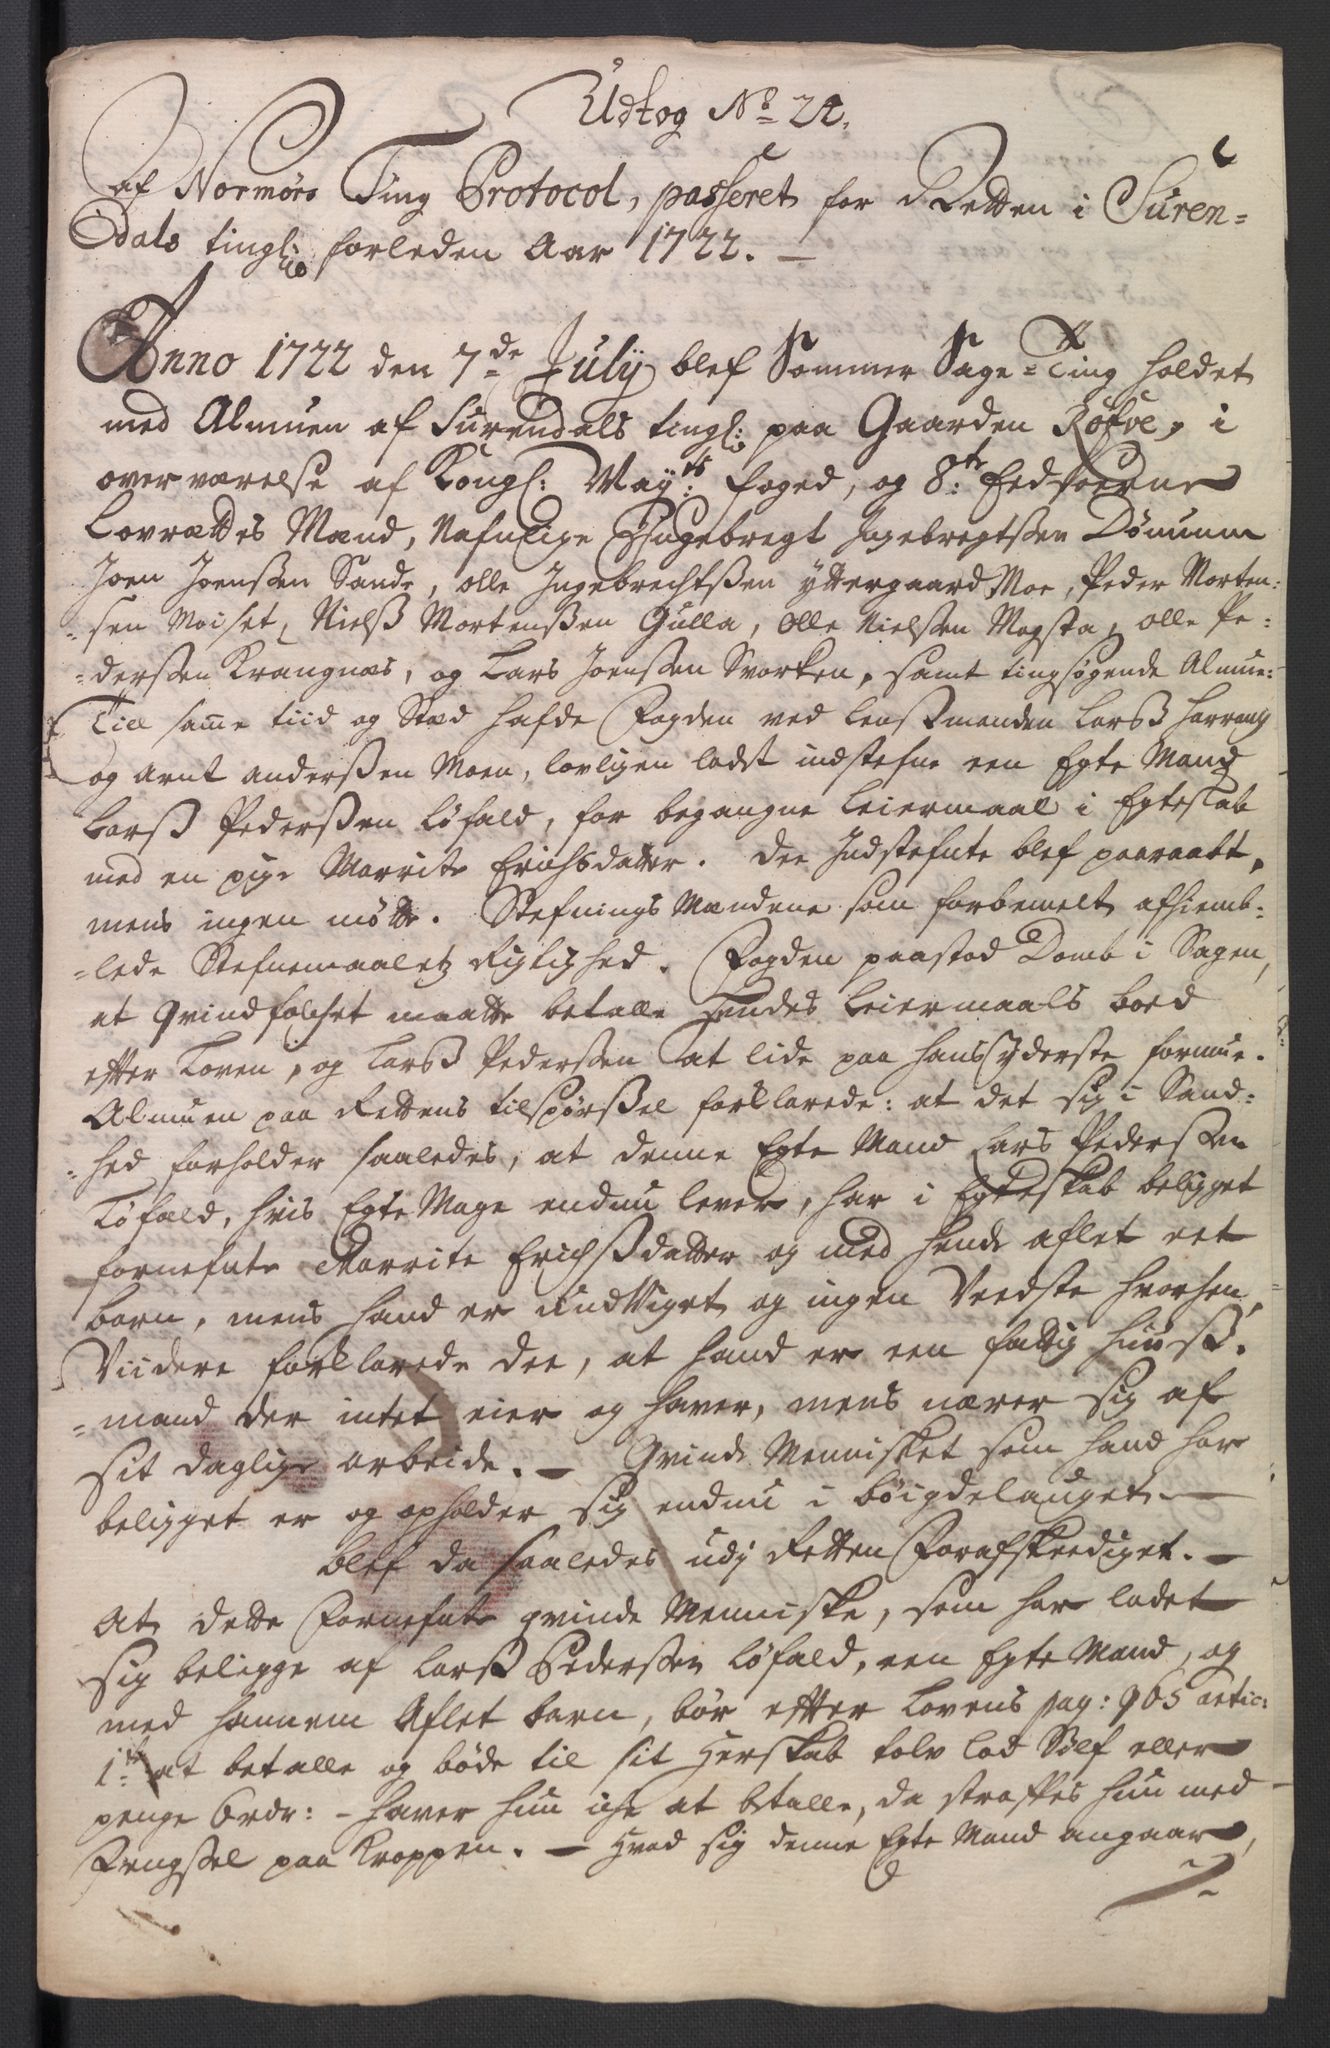 Udtog No 24.
af Normørs Ting Protocol, passeret for Retten i Suren=
dals tingl: forleden Aar 1722. —
Anno 1722 den 7de July blef Sommer Sage=Ting holdet
med Almuen af Surendals tingl: paa Gaarden Røfve, i
overværelse af Kongl: May:ts foged, og 8te Eedsvorne
Lovrættes Mænd, Nafnlige Engebregt Ingebregtssen Dønnum
Joen Joenssen Sande, olle Ingebrechtssen yttergaard Moe, Peder Morten=
=sen Moiset, Nielss Mortenssen Gulla, Olle Nielssen Mogsta, olle Pe=
=derssen Krangnæs, og Lars Joenssen Svorken, samt tingsøgende Almue:
Till samme tiid og Stæd hafde Fogden ved lenssmanden Larss Harrang
og Arnt Anderssen Moen, lovligen ladet indstefne een Egte Mand
Larss Pederssen Løfald, for begangne Leiermaal i Egteskab
med en pige Marrite Erichsdatter. Dee Indstefnte blef paaraabt,
mens ingen møtte. Stefnings Mændene som forbemelt afhiemb=
=lede Stefnemaaletz Rigtighed. Fogden paastod Domb i Sagen,
at Qvindfolchet maatte betalle Hendes Leiermaals boed
efter Loven, og Larss Pederssen at lide paa hans Yderste formue.
Almuen paa Rettens tilspørssel forklarede: at det sig i Sand=
=hed forholder saaledes, at denne Egte Mand Lars Pederssen
Løfald, hvis Egte Mage endnu lever, har i Egteskab beligget
fornefnte Marrite Erichssdatter og med hende aflet eet
barn, mens hand er undviget og ingen Veedste hvorhen,
Viidere forklarede dee, at hand er een fattig huuss=
=mand der intet eier og haver, mens nærer sig af
sit daglige arbeide. — Qvinde Mennisket som hand har
beligget er og opholder sig endnu i bøigdelauget —
blef da saaledes udj Retten Forafskeediget. —
At dette Fornefnte qvinde Menniske, som har ladet
sig beligge af Larss Pederssen Løfald, een Egte Mand, og
med hannem Aflet barn, bør efter Lovens pag: 965 artic:
1te at betalle og bøde til sit Herskab tolv lod Sølf eller
penge 6 rdr: — haver hun iche at betalle, da straffes hun med
Fengssel paa Kroppen. — Hvad sig denne Egte Mand angaar,